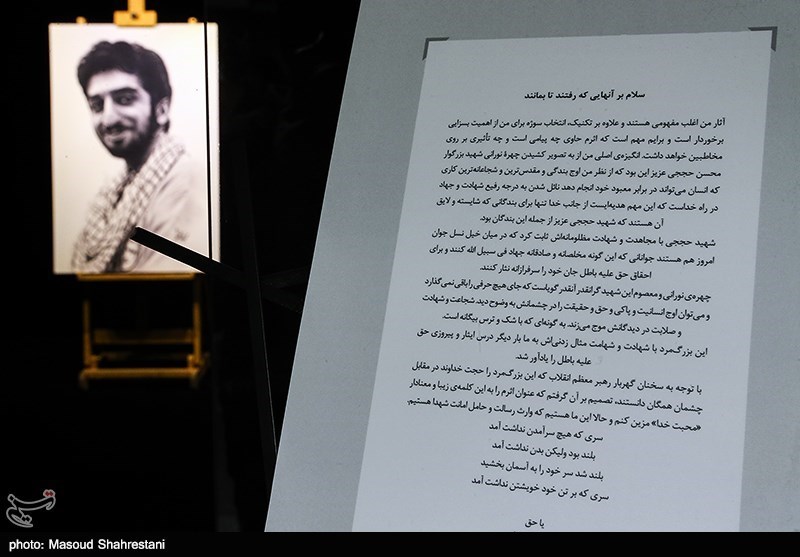 سلام بر آنهایی که رفتند تا بمانند
آثار من اغلب مفهومی هستند و علاوه بر تکنیک، انتخاب سوژه برای من از اهمیت بسزایی
برخوردار است و برایم مهم است که اثرم حاوی چه پیامی است و چه تأثیری بر روی
مخاطبین خواهد داشت. انگیزه‌ی اصلی من از به تصویر کشیدن چهرهٔ نورانی شهید بزرگوار
محسن حججی عزیز این بود که از نظر من اوج بندگی و مقدس‌ترین و شجاعانه‌ترین کاری
که انسان می‌تواند در برابر معبود خود انجام دهد نائل شدن به درجه رفیع شهادت و جهاد
در راه خداست که این مهم هدیه‌ایست از جانب خدا تنها برای بندگانی که شایسته و لایق
آن هستند که شهید حججی عزیز از جمله این بندگان بود.
شهید حججی با مجاهدت و شهادت مظلومانه‌اش ثابت کرد که در میان خیل نسل جوان
امروز هم هستند جوانانی که این گونه مخلصانه و صادقانه جهاد فی سبیل الله کنند و برای
احقاق حق علیه باطل جان خود را سرفرازانه نثار کنند.
چهره‌ی نورانی و معصوم این شهید گرانقدر آنقدر گویاست که جای هیچ حرفی را باقی نمی‌گذارد
و می‌توان اوج انسانیت و پاکی و حق و حقیقت را در چشمانش به وضوح دید. شجاعت و شهادت
و صلابت در دیدگانش موج می‌زند. به گونه‌ای که با شک و ترس بیگانه است.
این بزرگ‌مرد با شهادت و شهامت مثال زدنی‌اش به ما بار دیگر درس ایثار و پیروزی حق
علیه باطل را یادآور شد.
با توجه به سخنان گهربار رهبر معظم انقلاب که این بزرگ‌مرد را حجت خداوند در مقابل
چشمان همگان دانستند، تصمیم بر آن گرفتم که عنوان اثرم را به این کلمه‌ی زیبا و معنادار
«محبت خدا» مزین کنم و حالا این ما هستیم که وارث رسالت و حامل امانت شهدا هستیم.
سری که هیچ سرآمدن نداشت آمد
بلند بود ولیکن بدن نداشت آمد
بلند شد سر خود را به آسمان بخشید
سری که بر تن خود خویشتن نداشت آمد
یا حق
photo: Masoud Shahrestani